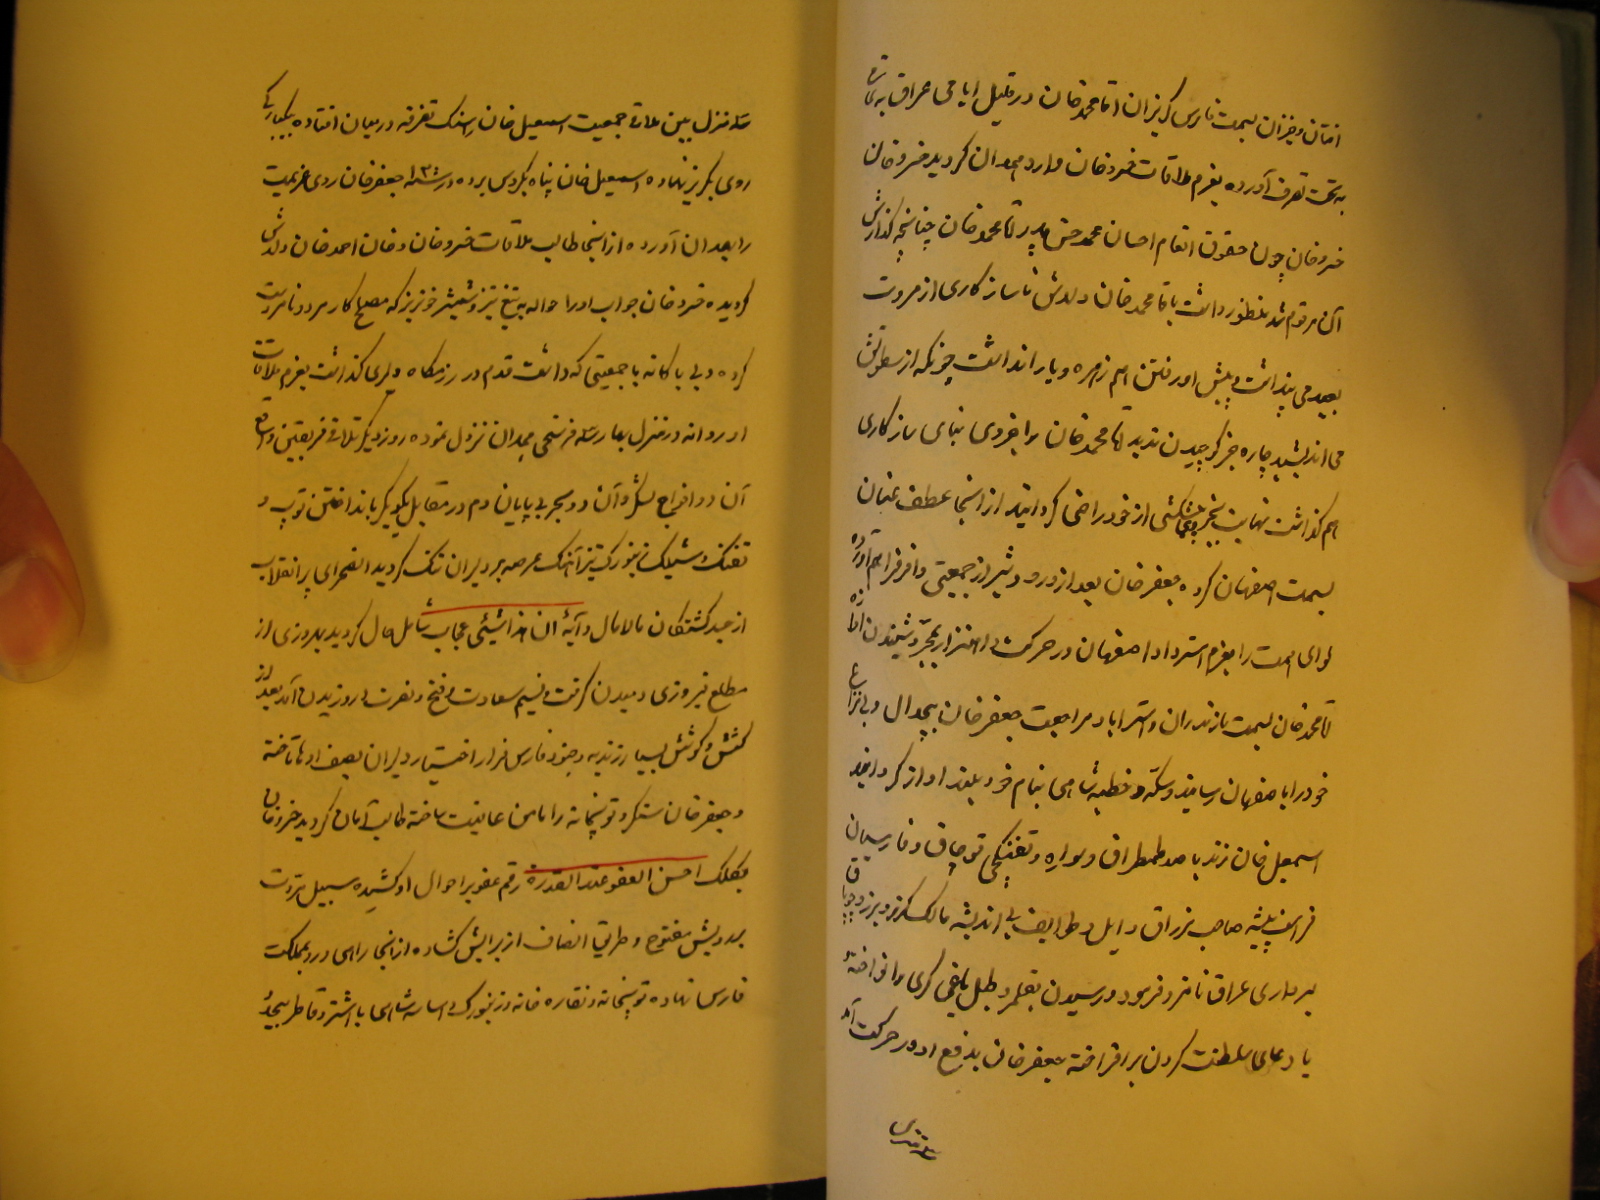 افتان و خیزان بسمت فارس گریزان آقا محمد خان در قلیل ایامی عراق به
به تحت تصرف آورده بعزم ملاقات خسرو خان وارد همدان گردید خسرو خان
خسرو خان چون حقوق انعام احسان محمد حسن پدر آقا محمد خان چنانچه گذارش
آن مرقوم شد منظور داشت با آقا محمد خان و لدش ناسازکاری از مروت
بعید می پنداشت و پیش او رفتن هم زهره و یارا نداشت چونکه از سطوتش
می اندیشید چاره جز کوچیدن ندید آقا محمد خان بنای سازکاری
هم گذاشت نهایت از خود راضی گردانید از آنجا عطف عنان
بسمت اصفهان کرده جعفر خان بعد از ورود شیراز جمعیتی وافر فراهم آورده
لوای همت را بعزم استرداد اصفهان در حرکت و اهتزاز بمجرد شنیدن
آقا محمد خان بسمت مازندران و استراباد مراجعت جعفر خان بیجدال و بی نزاع
خود را باصفهان رسانید و سکه و خطبه شاهی بنام خود بلند اواز گردانید
اسمعیل خان زند با صد طمطراق و سواره و تفنگچی قوچاق و فارسیان
صاحب یراق و ایل و طوایف بی اندیشه
بسرداری عراق نامزد فرمود و رسیدن بقلمرو طبل یاغی گری وا نواخته
با دعای سلطنت کردن بر افراخته جعفر خان بدفع او در حرکت آمد
سه منزل بین تلاقی جمعیت اسمعیل خان را سنک تفرقه در میان افتاده یکبارکی
روی بگریز نهاده اسمعیل خان پناه بگروس برده در سنه جعفر خان روی عزیمت
را بهمدان آورده از آنجا طالب ملاقات خسرو خان و خان احمد خان ولدش
گردیده خسرو خان جواب او را حواله به تیغ تیز و شمشیر خونریز که مصلح کار مرد و نامردست
کرده و بی باکانه با جمعیتی که داشت قدم در رزمگاه دلیری گذاشت بعزم ملاقات
او روانه در منزل بهار سه فرسخی همدان نزول نموده روز دیگر تلاقی فریقین واقع
آن دو افواج لشکر و آن دو بحر بی پایان دم در مقابل یکدیگر باانداختن توپ و
تفنک و شلیک زنبورک تیز آهنک عرصه بر دلیران تنک گردید الصحرای پر انقلاب
از جسد کشتکان مالامال و آیهٔ ان هذا لشیئی عجاب شامل حال گردید بهروزی از
مطلع فیروزی دمیدن گرفت و نسیم سعادت و فتح و نصرت و روزیدن آمد بعد از
کشش و کوشش بسیار زندیه و جنود فارس فرار اختیار دلیران بصف اوها تاخته
و جعفر خان سنکر و توپخانه را مامن عافیت ساخته طالب امان گردید خسرو خان
بکلک احسن العفو عند القدرة رقم عفو بر احوال او کشیده سبیل مروت
برویش مفتوح و طریق انصاف از برایش گشاده از آنجا راهی و رو بمملکت
فارس نهاده توپخانه و نقاره خانه و زنبورک و اساسه شاهی با اشتر و قاطر بیحد
سه منزل